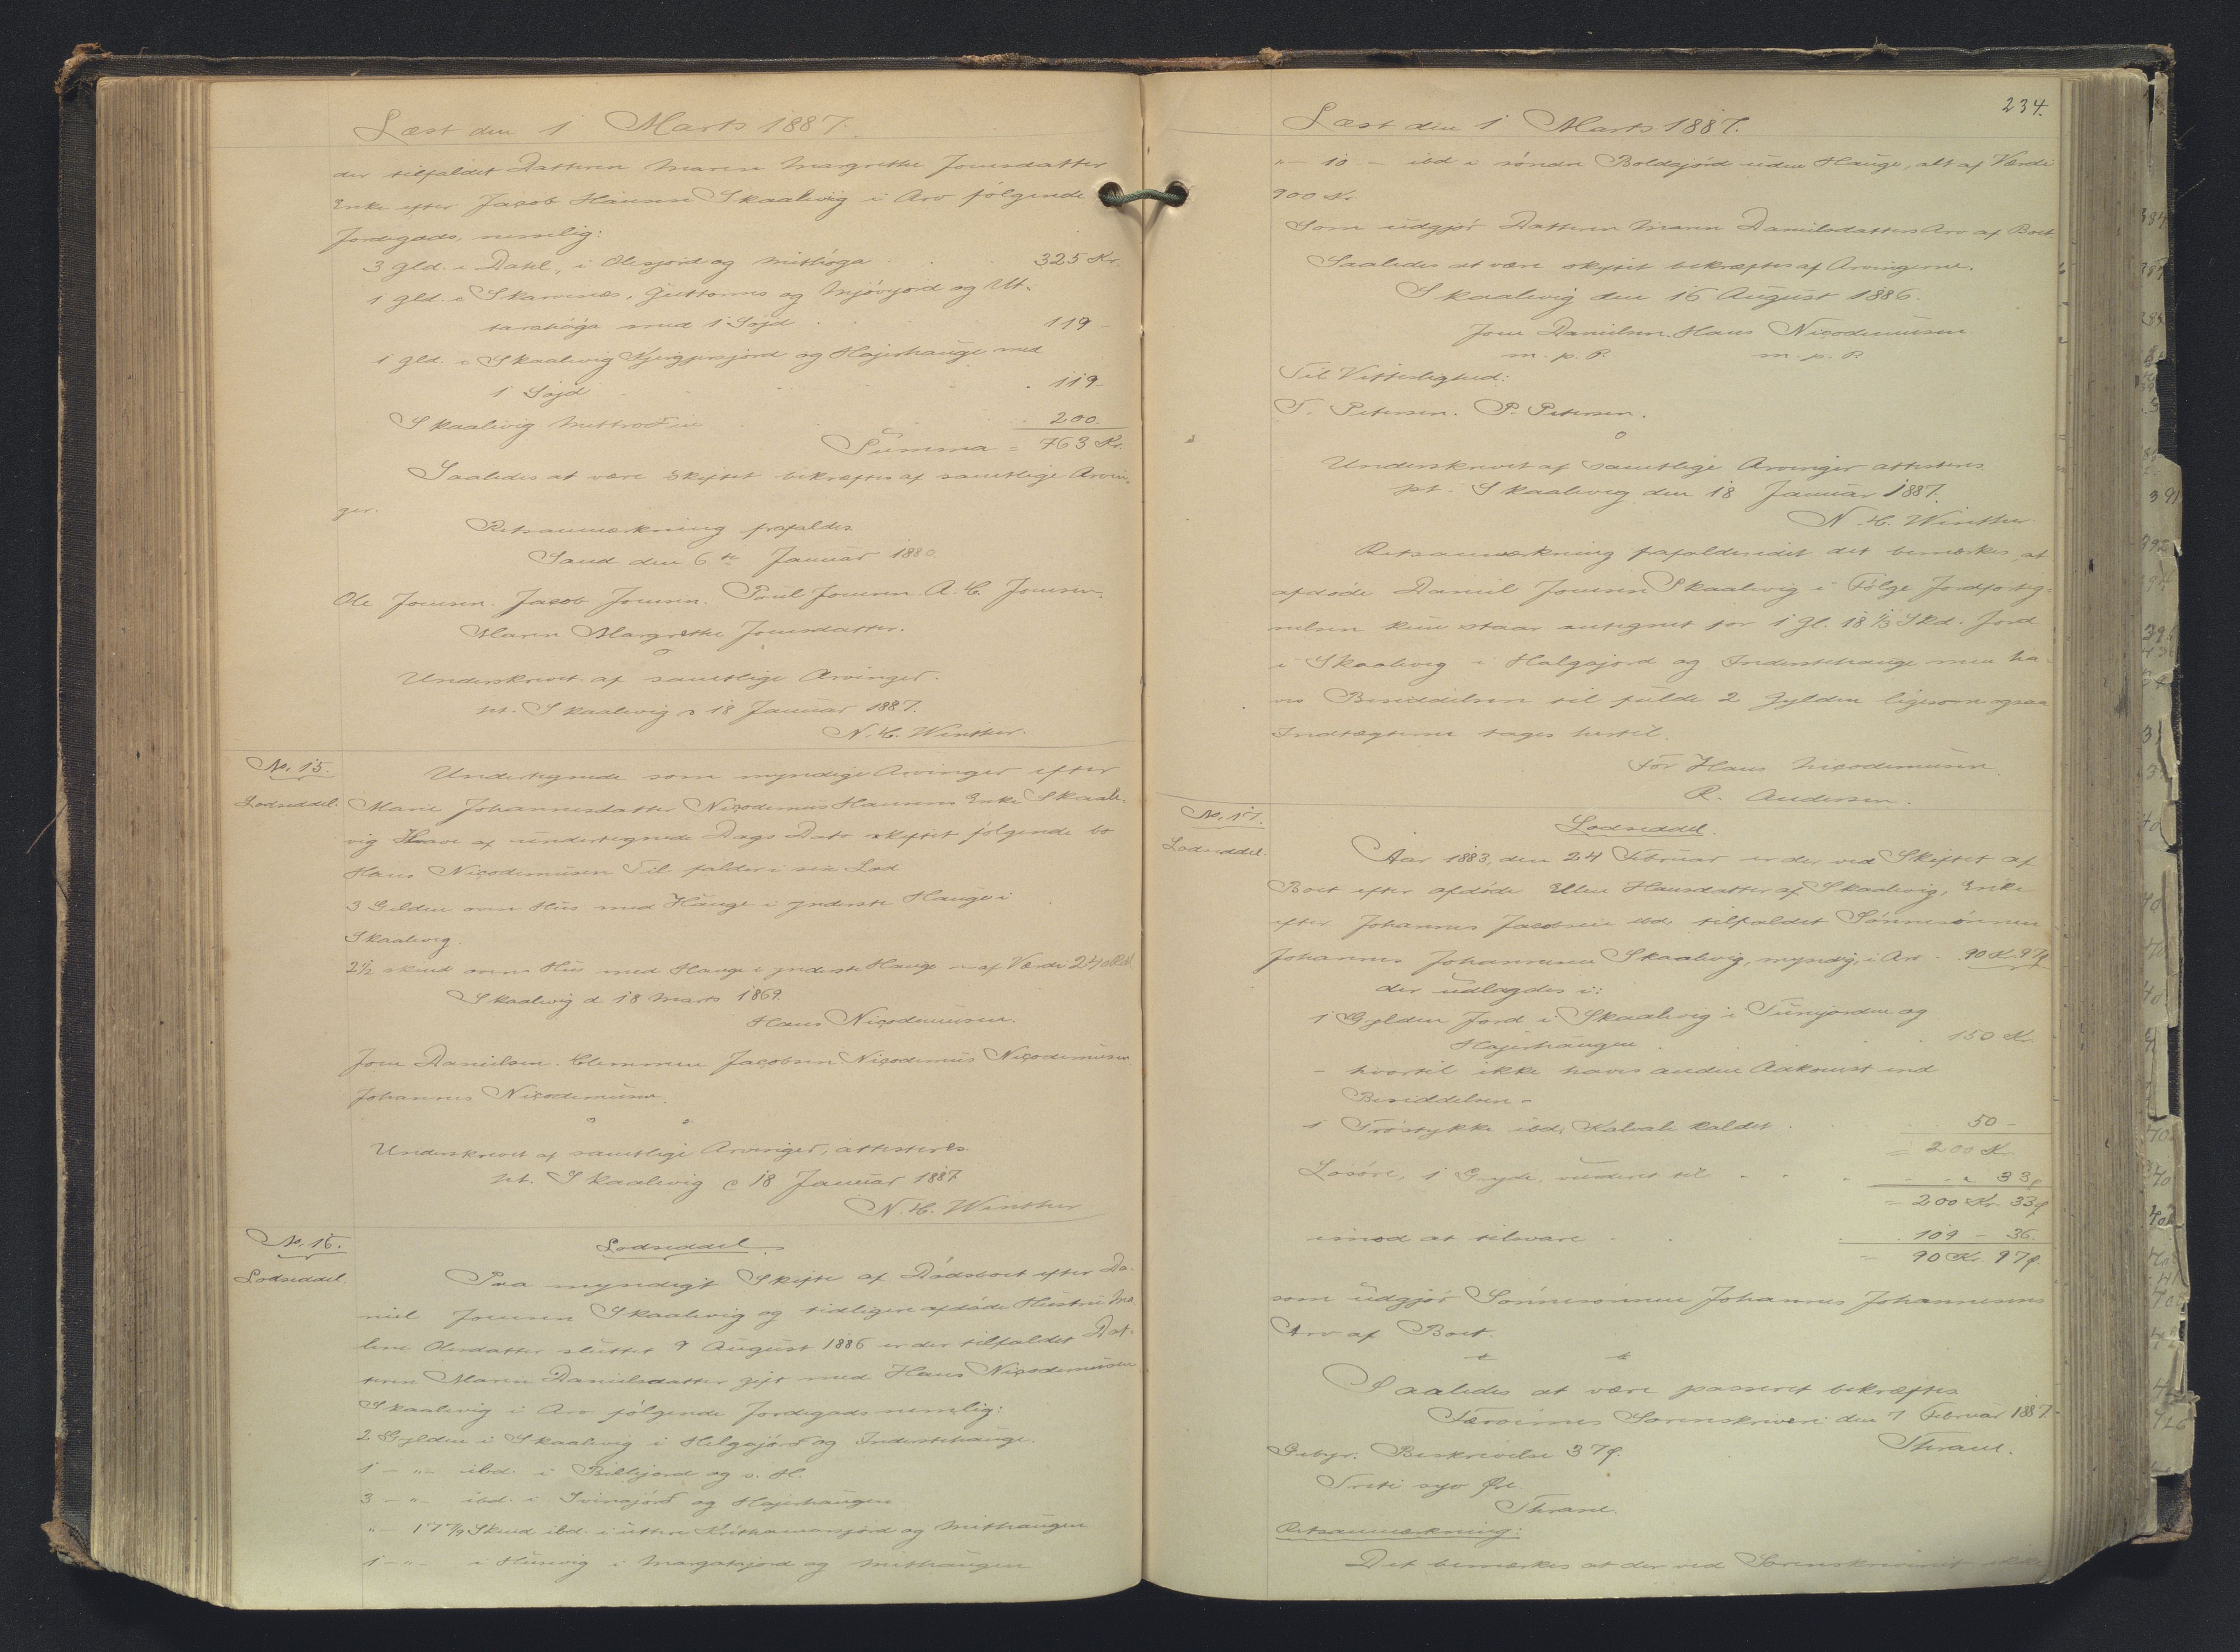 Læst den 1 Marts 1887.
der tilfaldet Datteren Maren Margrethe Joensdatter
Enke efter Jacob Hansen Skaalevig i Arv følgende
Jordegods, nemlig:
3 Gld. i Dahl, i Olesjord og Mithøga . . 325 Kr.
1 Gld. i Skarvenæs, Guttorms og Mjóvjord og Ut-
tarahóga med 1 Søjd . 119 -
1 Gld. i Skaalevig Kjergjersjord og Højerhauge med
1 Søjd . . . 119 -
Skaalevig . . 200.
Summa = 763 Kr.
Saaledes at være skiftet bekræftes af samtlige Arvin-
ger.
Retsanmærkning frafaldes.
Sand den 6te Januar 1880.
Ole Joensen. Jacob Joensen. Poul Joensen. A. C. Joensen.
Maren Margrethe Joensdatter.
Underskrevet af samtlige Arvinger.
pt. Skaalevig d 18 Januar 1887.
N. C. Winther.
No. 15.
Lodseddel.
Undertegnede som myndige Arvinger efter
Marie Johannesdatter Nicodemus Hansens Enke Skaale-
vig Have af undertegnede Dags Dato skiftet følgende
Hans Nicodemusen Til falder i sin Lod
3 Gylden oven Hus med Hauge i ynderste Hauge i
Skaalevig.
2½ skind oven Hus med Hauge i ynderste Hauge - af Værdi 240
Skaalevig d 18 Marts 1869.
Hans Nicodemusen.
Joen Danielsen. Clemmen Jacobsen Nicodemus Nicodemusen
Johannes Nicodemusen.
Underskrevet af samtlige Arvinger, attesteres.
pt. Skaalevig d 18 Januar 1887.
N. C. Winther
No. 16.
Lodseddel.
Lodseddel.
Paa myndigt Skifte af Dødsboet efter Da-
niel Joensen Skaalevig og tidligere afdøde Hustru Ma-
lene Olesdatter sluttet 9 August 1886 er der tilfaldet Dat-
teren Maren Danielsdatter gift med Hans Nicodemusen
Skaalevig i Arv følgende Jordegods nemlig:
2 Gylden i Skaalevig i Helgajørd og Inderstehauge.
1 - " - ibd. i Billijord og s. H.
3 - " - ibd. i og Højerhaugen
" - Skind ibd. i uttere og Mithaugen
1 - " - i Husevig i og Mithaugen
234.
Læst den 1 Marts 1887.
" - 10 - ibd i søndre Boldajord uden Hauge, alt af Værdi
900 Kr.
Som udgjør Datteren Maren Danielsdatters Arv af Boet.
Saaledes at være skiftet bekræftes af Arvingerne.
Skaalevig den 16 August 1886.
Joen Danielsen. Hans Nicodemusen
m. p. P. m. p. P.
Til Vitterlighed:
T. Petersen. P. Petersen.
Underskrevet af samtlige Arvinger attesteres.
pt. Skaalevig den 18 Januar 1887.
N. C. Winther.
Retsanmærkning frafaldes idet det bemærkes, at
afdøde Daniel Joensen Skaalevig i Følge Jordforteg-
nelsen kun staar antegnet for 1 Gl. 18 ⅓ Skd. Jord
i Skaalevig i Halgajord og Inderstehauge men ha-
ves Besiddelsen til fulde 2 Gylden ligesom ogsaa
Indtægterne tages hertil.
For Hans Nicodemusen
R. Andersen.
No. 17.
Lodseddel.
Lodseddel.
Aar 1883, den 24 Februar er der ved Skiftet af
Boet efter afdøde Ellen Hansdatter af Skaalevig, Enke
efter Johannes Jacobsen ibd. tilfaldet Sønnesønnen
Johannes Johannesen Skaalevig, myndig, i Arv - 90 K. 97 ø
der udlagdes i:
1 Gylden Jord i Skaalevig i Tunjorden og
Højerhaugen . . . 150 Kr.
- hvortil ikke haves anden Adkomst end
Besiddelsen -
1 Trøstykke ibd. Kalvali kaldet . . 50 -
= 200 Kr.
Løsøre, 1 Gryde, vurderet til . . . . " 33 ø
= 200 Kr. 33 ø
imod at tilsvare . . . 109 - 36.
= 90 Kr. 97 ø.
som udgjør Sønnesønnen Johannes Johannesens
Arv af Boet.
Saaledes at være passeret bekræftes
Færøernes Sorenskriveri den 7 Februar 1887.
Thrane.
Gebyr. Beskrivelse 37 ø.
Treti syv Øre.
Thrane.
Retsanmærkning:
Det bemærkes at der ved Sorenskriveriet ikke